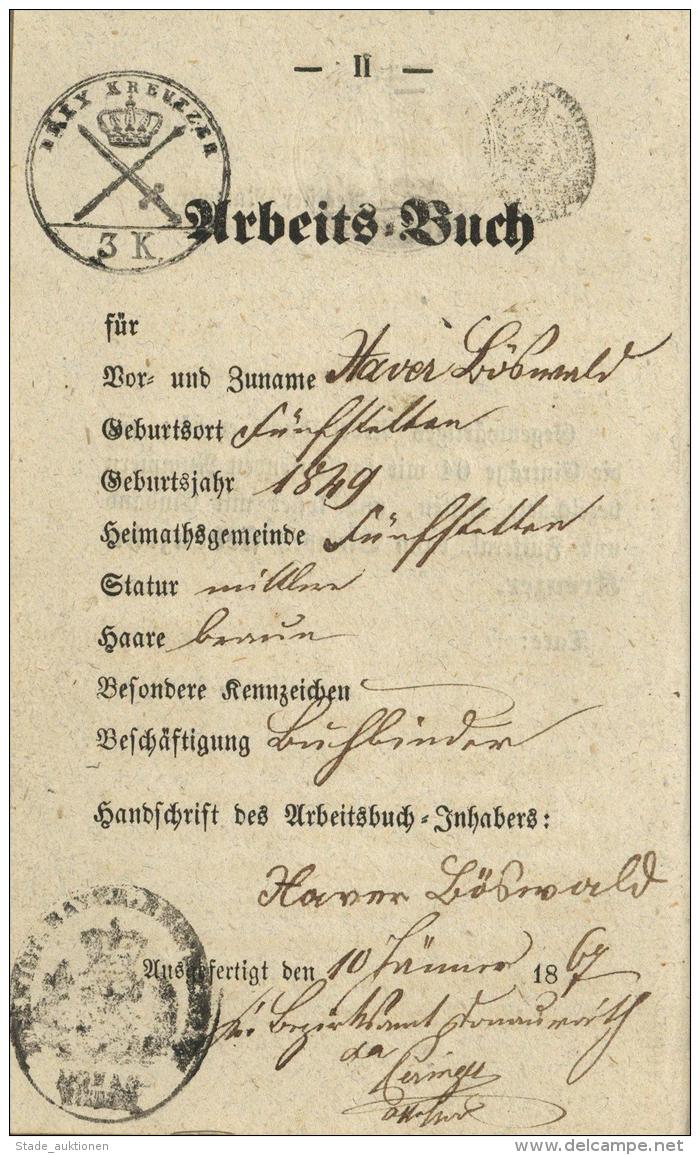 — II —
DREY KREUZER
3 K.
Arbeits-Buch
für
Vor- und Zuname Xaver Böswald
Geburtsort Fünfstetten
Geburtsjahr 1849
Heimathsgemeinde Fünfstetten
Statur mittlere
Haare braun
Besondere Kennzeichen —
Beschäftigung Buchbinder
Handschrift des Arbeitsbuch-Inhabers:
Xaver Böswald
Ausgefertigt den 10 Jänner 1867
Bezirksamt Donauwörth
Stade_auktionen
delcampe.net